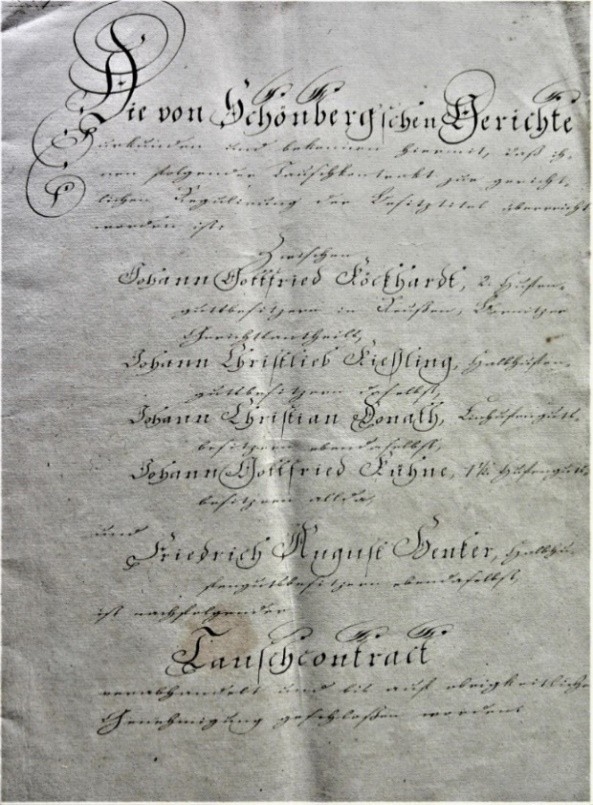 Die von Schönberg'schen Gerichte
Uurkunden und bekennen hiermit, daß ih,
nen folgender Tauschkontrakt zur gericht,
lichen Regulirung der Besitztitel überreicht
worden ist.
Zwischen
Johann Gottfried Köckhardt, 2. Hufen,
guttbesitzern in
Gerichtsantheils,
Johann Christlieb Kießling, Halbhufen,
guttbesitzern daselbst,
Johann Christian Donath, Einhufengutt,
besitzern ebendaselbst,
Johann Gottfried Kühne, Hufengutt,
besitzern allda,
und
Friedrich August Henker, Halbhu,
fenguttsbesitzern ebendaselbst,
ist nachfolgender
Tauschcontract
verabhandelt und bis auf obrigkeitliche
Genehmigung geschloßen worden.